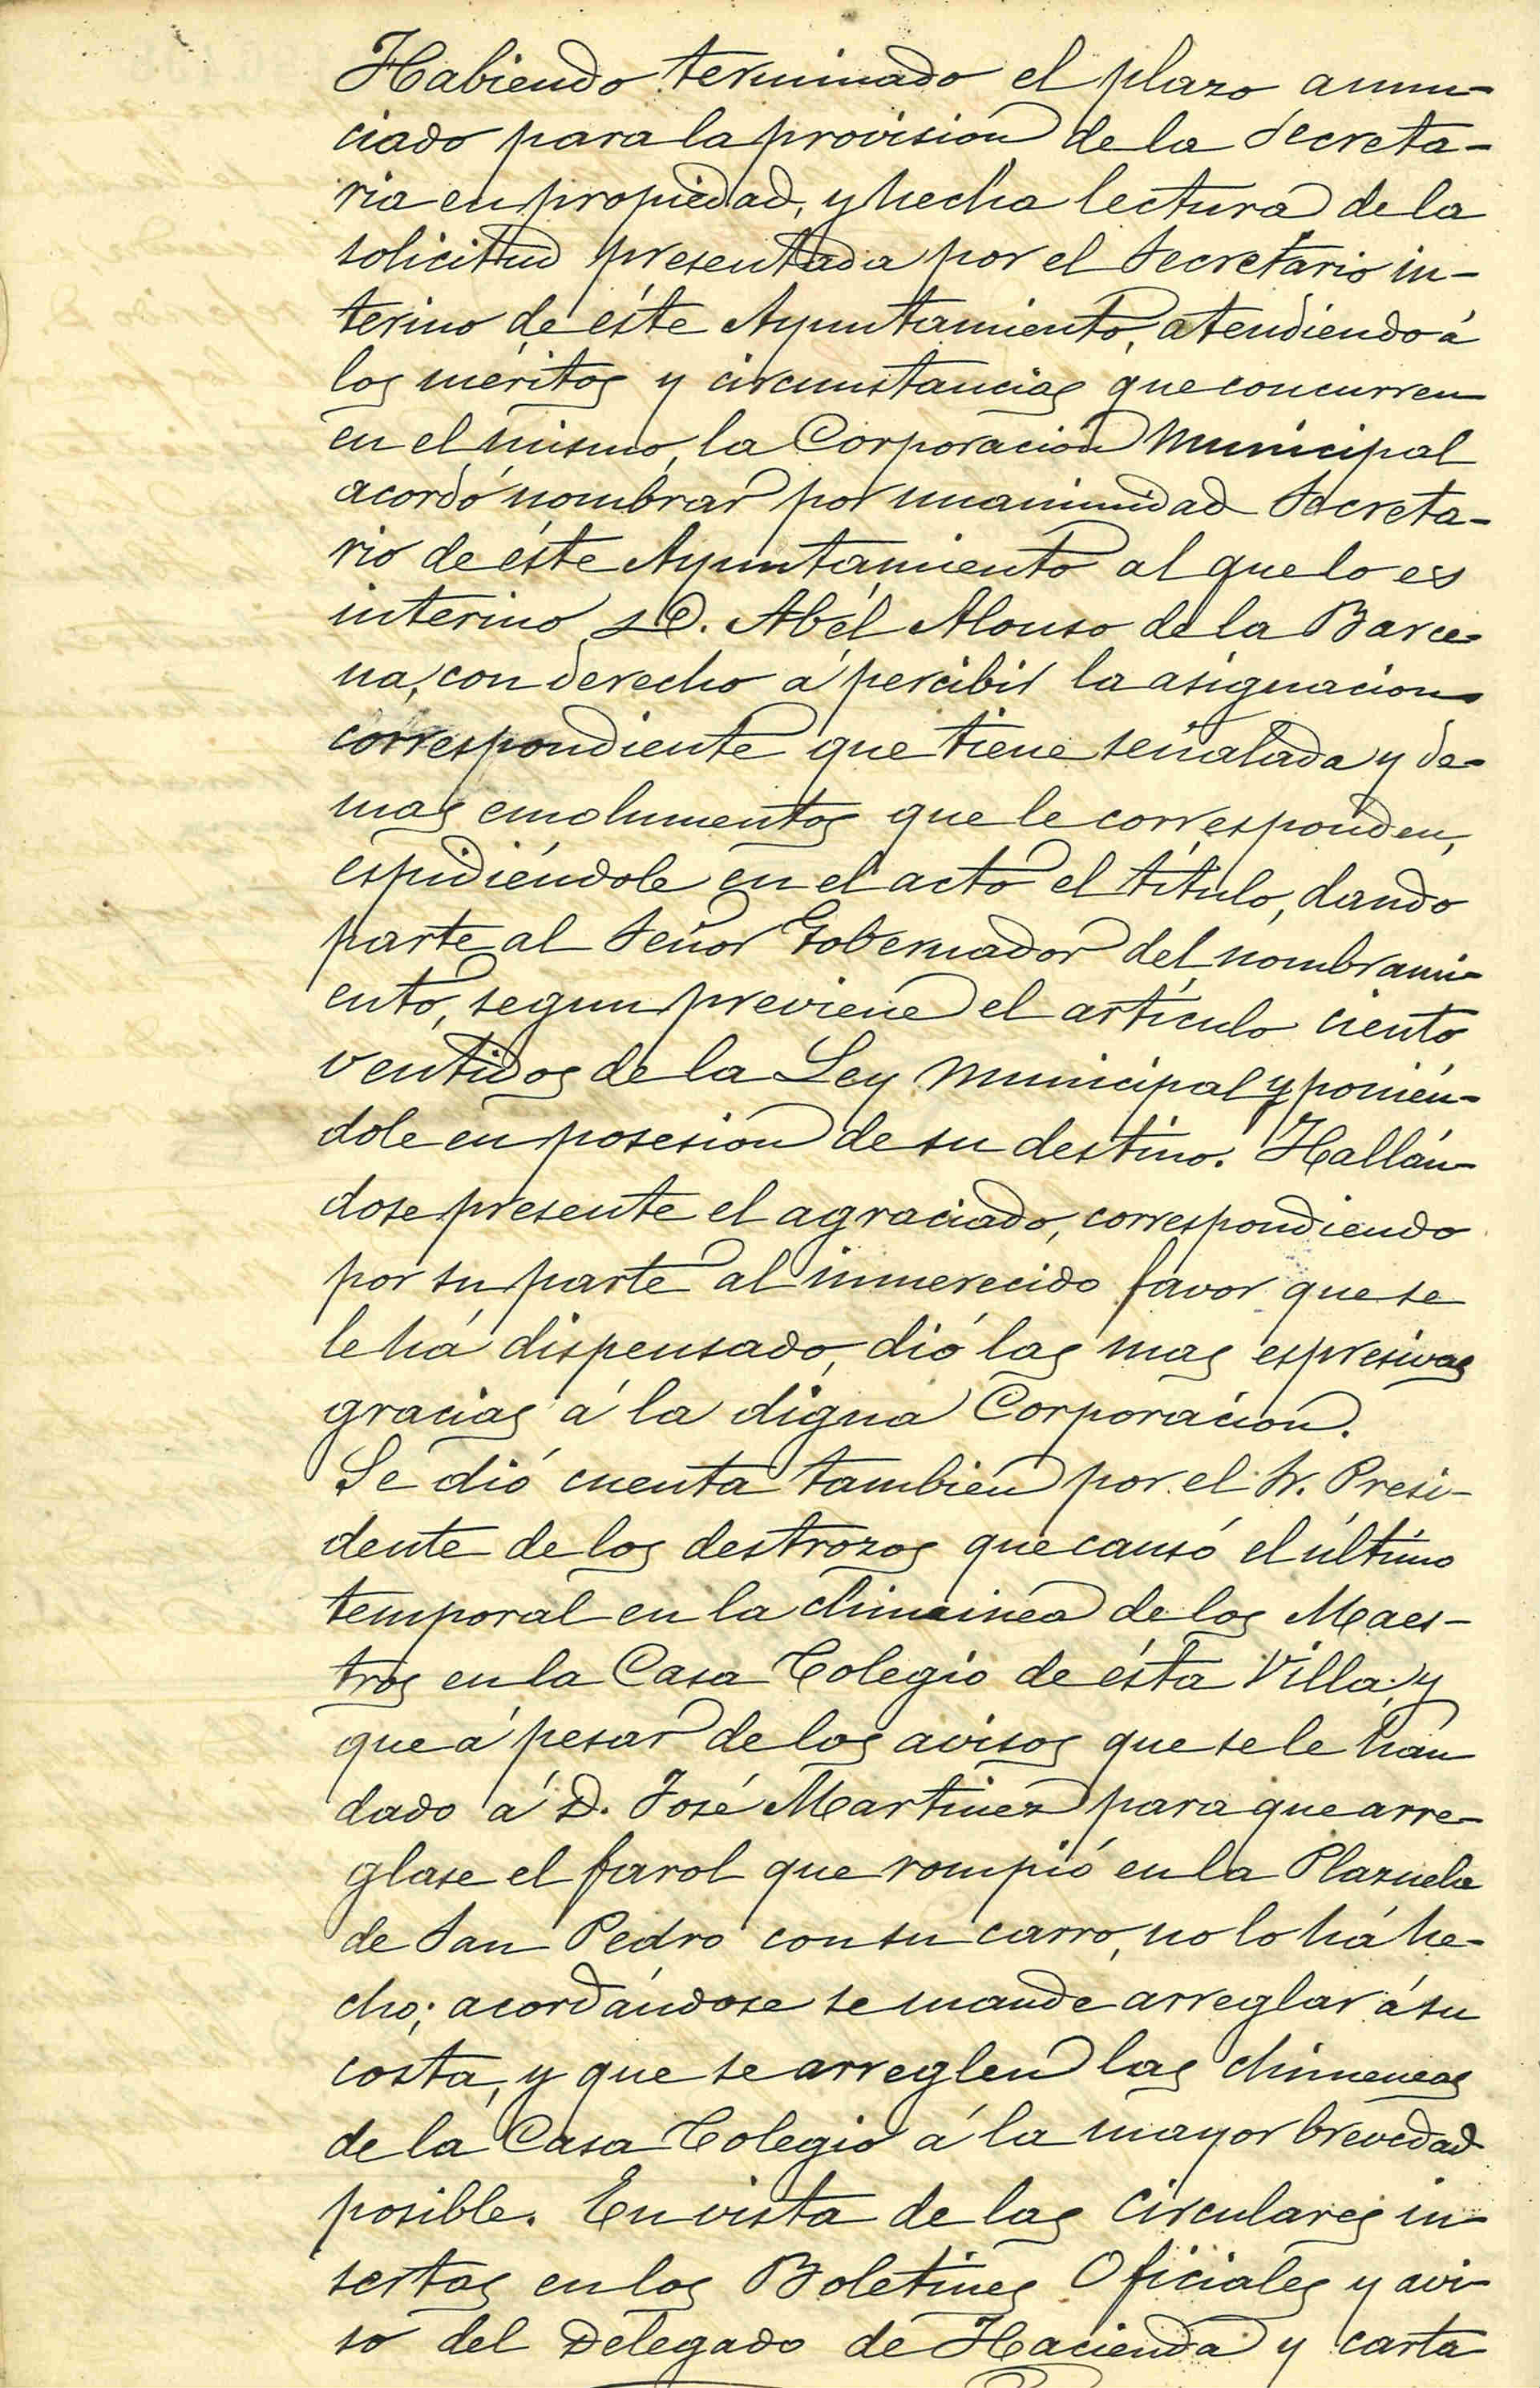 Habiendo terminado el plazo anun-
ciado para la provision de la Secreta-
ria en propiedad, y hecha lectura de la
solicitud presentada por el Secretario in-
terino de éste Ayuntamiento, atendiendo á
los méritos y circunstancias que concurren
en el mismo, la Corporacion Municipal
acordó nombrar por unanimidad Secreta-
rio de éste Ayuntamiento al que lo es
interino D. Abél Alonso de la Barce-
na, con derecho á percibir la asignacion
correspondiente que tiene señalada y de-
mas emolumentos que le corresponden,
espidiéndole en el acto el título, dando
parte al Señor Gobernador del nombrami-
ento, segun previene el artículo ciento
ventidos de la Ley Municipal y ponién-
dole en posesion de su destino. Hallán-
dose presente el agraciado, correspondiendo
por su parte al inmerecido favor que se
le há dispensado, dió las mas espresivas
gracias á la digna Corporacion.
Se dió cuenta tambien por el Sr. Presi-
dente de los destrozos que causó el último
temporal en la chimeinea de los Maes-
tros en la Casa Colegio de ésta Villa; y
que á pesar de los avisos que se le han
dado á D. José Martinez para que arre-
glase el farol que rompió en la Plazuela
de San Pedro con su carro, no lo há he-
cho; acordándose se mande arreglar á su
costa, y que se arreglen las chimeneas
de la Casa Colegio á la mayor brevedad
posible. En vista de las circulares in-
sertas en los Boletines Oficiales y avi-
so del Delegado de Hacienda y carta